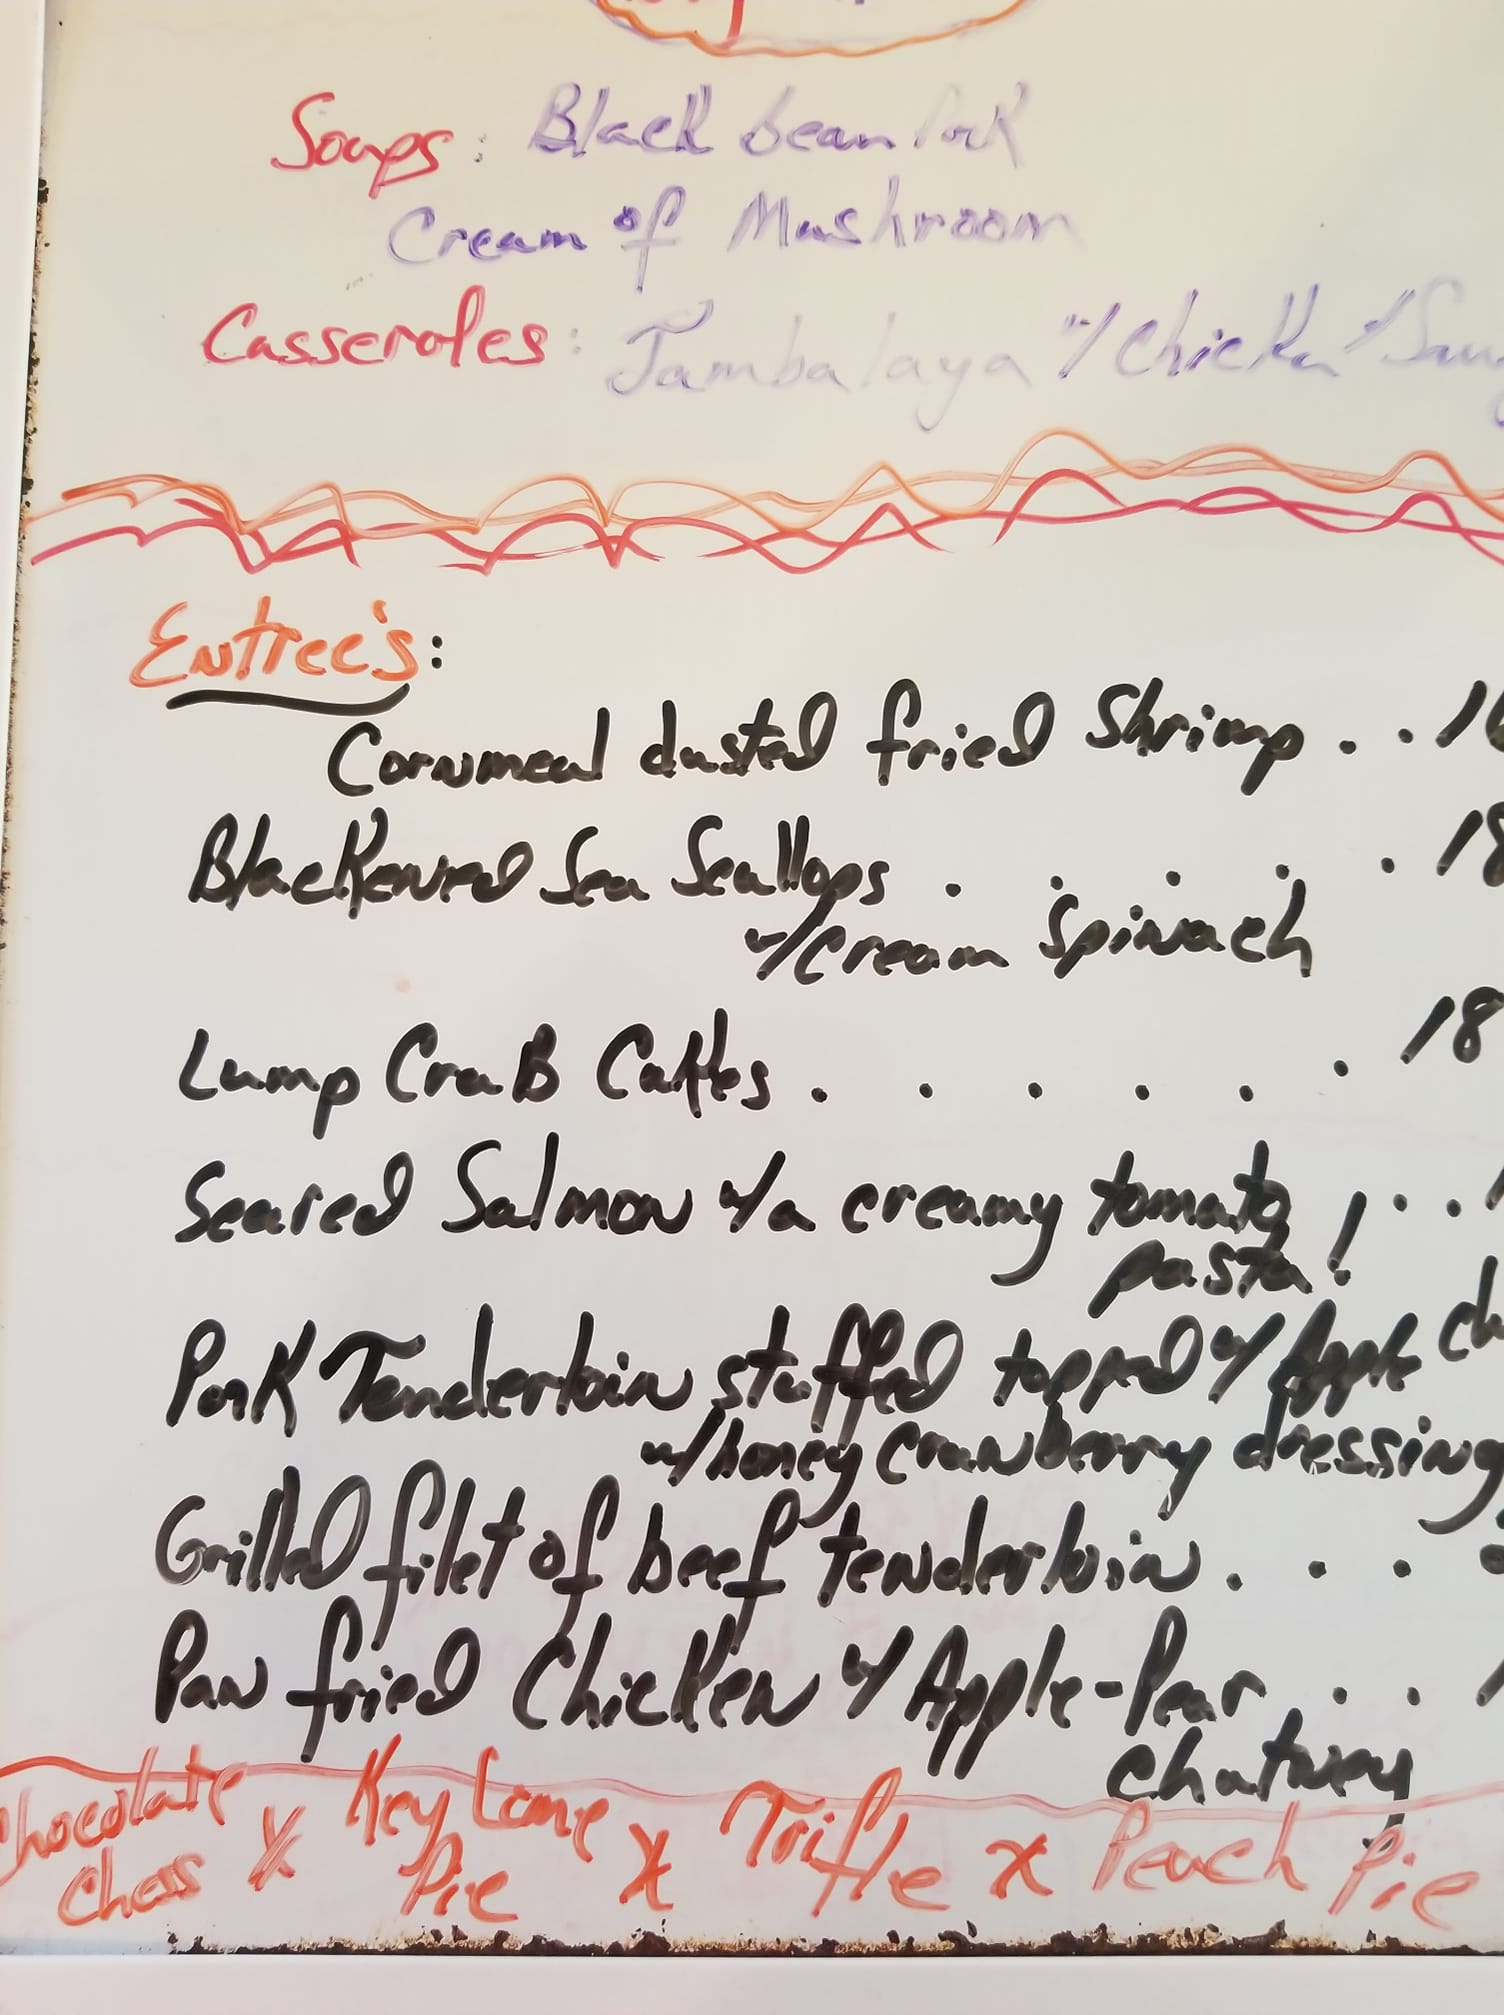 Soups: Black bean Pork
Cream of Mushroom
Casseroles: Jambalaya w/ Chicken w/
Entree's:
Cornmeal dusted fried Shrimp . .
Blackened Sea Scallops . . . . . 18
w/cream Spinach
Lump CraB Cakes . . . . . . 18
Seared Salmon w/a creamy tomato . .
pasta!
Pork Tenderloin stuffed topped w/ Apple
w/honey cranberry dressing
Grilled filet of beef tenderloin . . .
Pan fried Chicken w/ Apple-Pear . . .
Chatney
Chocolate x Key Lime x Trifle x Peach Pie
Chess Pie